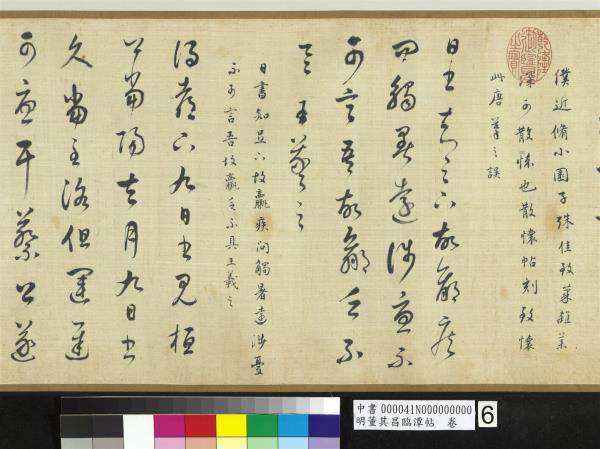 僕近脩小園子殊佳致菓雜菓
深可散懷也散懷帖刻致懷
此唐摹之誤
日書知足下故羸疾
問觸暑遠涉憂不
可言吾故羸乏不
具王羲之
日書知足下故羸疾問觸暑遠涉憂
不可言吾故羸乏不具王羲之
得都下九日書見桓
公當陽去月九日書
久當至洛但運遲
可憂耳蔡公遂
乾隆御覽之寶
中書 000041N000000000
明董其昌臨潭帖 卷
6